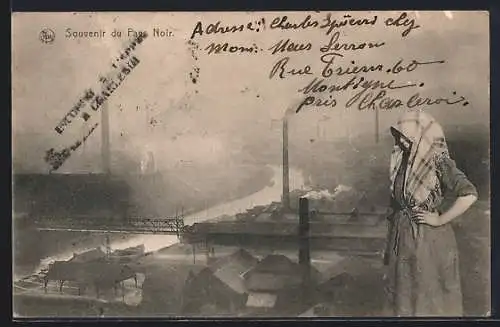 Souvenir du Pays Noir.
Adresse: Charles Spûcrd chez
Mons: Maus Serron
Rue Trieux. 60
Montigne
près Charleroi
CHARLEROI